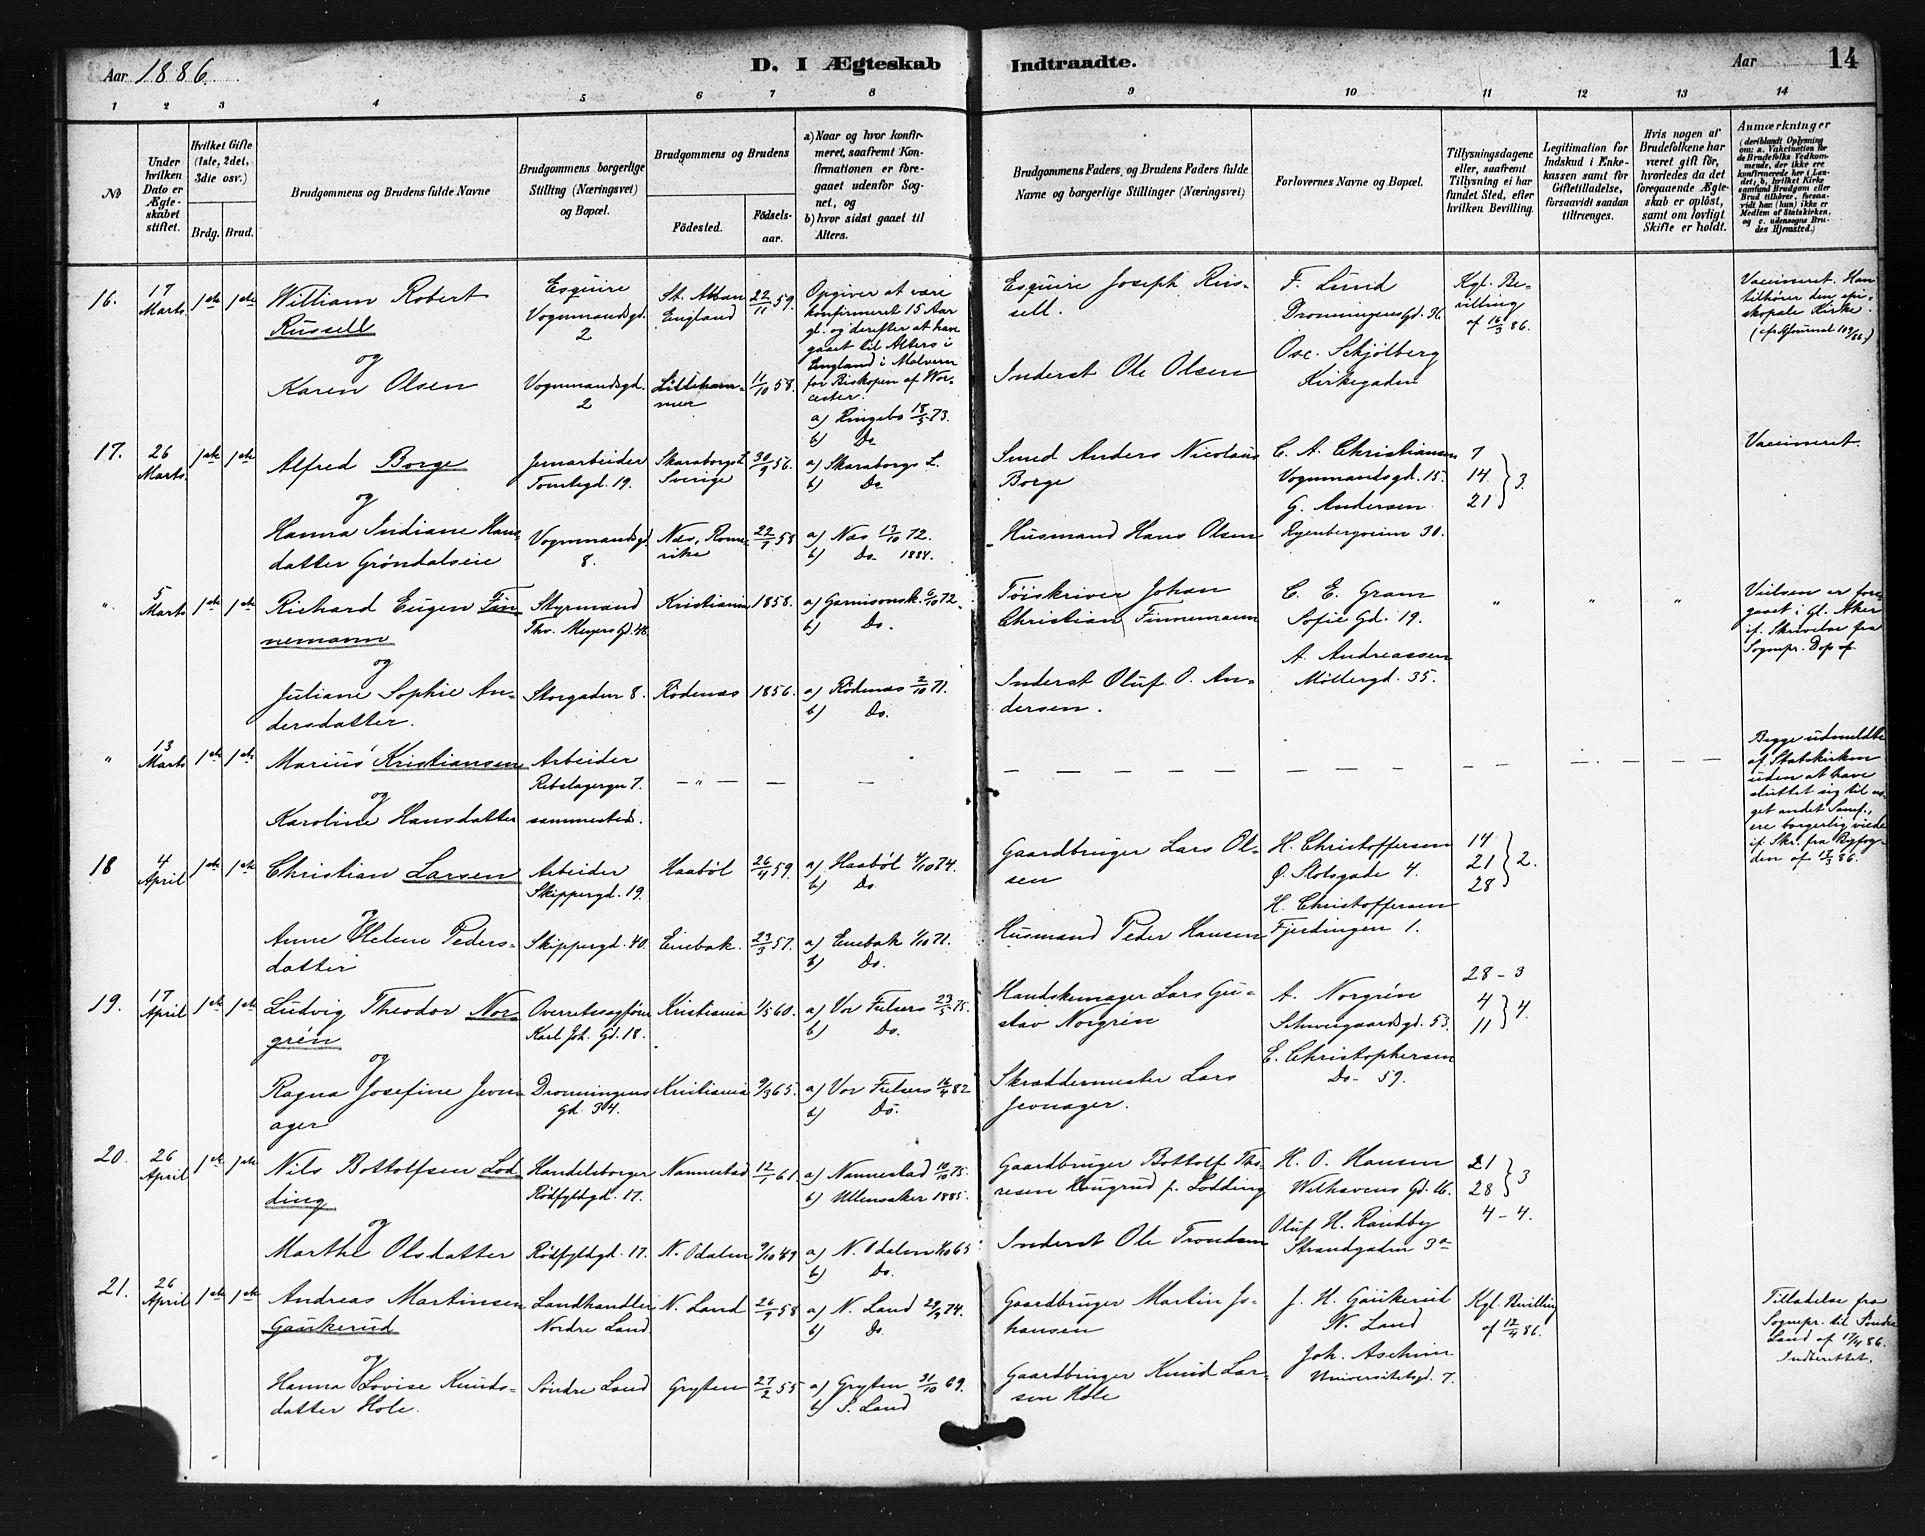 Aar 1886.
D. I Ægteskab Indtraadte.
Aar 14
1 2 3 4 5 6 7 8 9 10 11 12 13 14
No
Under hvilken Dato er Ægteskabet stiftet.
Hvilket Gifte (1ste, 2det, 3die osv.)
Brdg. Brud.
Brudgommens og Brudens fulde Navne
Brudgommens borgerlige Stilling (Næringsvei) og Bopæl.
Brudgommens og Brudens
Fødested.
Fødsels-aar.
a) Naar og hvor konfirmeret, saafremt Konfirmationen er foregaaet udenfor Sognet, og
b) hvor sidst gaaet til Alters.
Brudgommens Faders, og Brudens Faders fulde Navne og borgerlige Stillinger (Næringsvei)
Forlovernes Navne og Bopæl.
Tillysningsdagene eller, saafremt Tillysning ei har fundet Sted, efter hvilken Bevilling.
Legitimation for Indskud i Enkekassen samt for Giftetilladelse, forsaavidt saadan tiltrænges.
Hvis nogen af Brudefolkene har været gift før, hvorledes da det foregaaende Ægteskab er opløst, samt om lovligt Skifte er holdt.
Anmærkninger (deriblandt Oplysning om: a. Vakcination for de Brudefolks Vedkommende, der ikke ere konfirmerede her i Landet, b. hvilket Kirkesamfund Brudgom eller Brud tilhører, forsaavidt han (hun) ikke er Medlem af Statskirken, og c. udensogns Brudes Hjemsted.)
16. 17 Marts 1ste 1ste William Robert Russell
Esquire Vognmandsgd. 2
St. Alban England 22/11 59.
Opgiver at være konfirmeret 15 Aar gl. og derefter at have gaaet til Alters i England i Malvern for Biskopen af Worcester.
Esquire Joseph Russell.
F. Lund Dronningens Gd. 36.
Kgl. Bevilling af 16/3 86.
Vaccineret. Han tilhører den episkopale Kirke.
og
Karen Olsen
Vognmandsgd. 2
Lillehammer 11/10 58.
a) Ringebo 18/5 73.
b) Do
Inderst Ole Olsen
Osc. Schjølberg Kirkegaden
17. 26 Marts 1ste 1ste Alfred Borge
Jernarbeider Tomtegd. 19.
Skaraborgs L. Sverige 30/9 56.
a) Skaraborgs L.
b) Do
Smed Anders Nicolaus Borge
C. A. Christiansen Vognmandsgd. 15.
7 14 21 } 3.
Vaccineret.
og
Hanna Indiane Hansdatter Grøndalseie
Vognmandsgd. 8.
Næs, Romerike 22/7 58
a) Næs 13/10 72.
b) Do. 1884.
Husmand Hans Olsen
G. Andersen Ryenbergveien 30.
" 5 Marts 1ste 1ste Richard Eugen Finnemann
Styrmand Thv. Meyers Gd. 48.
Kristiania 1858.
a) Garnisonsk. 6/10 72.
b) Do.
Tøiskriver Johan Christian Finnemann
C. E. Gram Sofie Gd. 19.
" " "
Vielsen er foregaaet i Gl. Aker if. Skrivelse fra Sognepr. Dop af
og
Juliane Sophie Andersdatter.
Storgaden 8. Rødenæs 1856.
a) Rødenæs 2/10 71.
b) Do.
Inderst Oluf O. Andersen.
A. Andreassen Møllergd. 35.
" 13 Marts 1ste 1ste Marius Kristiansen
Arbeider Rebslagergn 7.
— " — — — — — — — —
Begge udmeldte af Statskirken uden at have sluttet sig til noget andet Samf., ere borgerlig viede if. Skr. fra Byfogden af 13/3 86.
og
Karoline Hansdatter sammesteds.
18 4 April 1ste 1ste Christian Larsen
Arbeider Skippergd. 19.
Haabøl 26/4 59.
a) Haabøl 4/10 74.
b) Do.
Gaardbruger Lars Olsen
H. Christoffersen Ø. Slotsgade 4.
14 21 28 } 2.
og
Anne Helene Pedersdatter
Skippergd. 40. Enebak. 23/3 57.
a) Enebak 1/10 71.
b) Do.
Husmand Peder Hansen
H. Christoffersen Fjerdingen 1.
19. 17 April 1ste 1ste Ludvig Theodor Norgrén
Overretssagfører Karl Joh. Gd. 18.
Kristiania 1/5 60.
a) Vor Frelsers 23/5 75.
b) Do.
Handskemager Lars Gustav Norgrén
A. Norgrén Schweigaardsgd. 53.
28 - 3
4 11 } 4.
og
Ragna Josefine Jevnager
Dronningens Gd. 34.
Kristiania 9/3 65.
a) Vor Frelsers 16/4 82
b) Do.
Skræddermester Lars Jevnager.
E. Christophersen Do- 59.
20. 26 April 1ste 1ste Nils Bottolfsen Lodding
Handelsborger Rødfyldgd. 17.
Nannestad 12/1 61
a) Nannestad 10/10 75.
b) Ullensaker 1885.
Gaardbruger Bottolf Thoresen Haugrud p. Lodding
H. O. Hansen Welhavens Gd. 16.
21 28 } 3
4 - 4.
og
Marthe Olsdatter Rødfyldgd. 17. N. Odalen 9/10 49
a) N. Odalen 1/10 65
b) Do.
Inderst Ole Trondsen
Oluf H. Randby Strandgaden 3a
21. 26 April 1ste 1ste Andreas Martinsen Gaukerud
Landhandler Nordre Land.
N. Land 26/9 58
a) N. Land 29/9 74.
b) Do.
Gaardbruger Martin Johansen
J. H. Gaukerud N. Land
Kgl. Bevilling af 12/4 86.
Tilladelse fra Sognepr. til Søndre Land af 17/4 86. Indberettet.
og
Hanna Lovise Knudsdatter Hole.
Søndre Land Gryten 27/2 55
a) Gryten 31/10 69.
b) S. Land
Gaardbruger Knud Larsen Hole
Joh. Aschim Universitetsgd. 7.